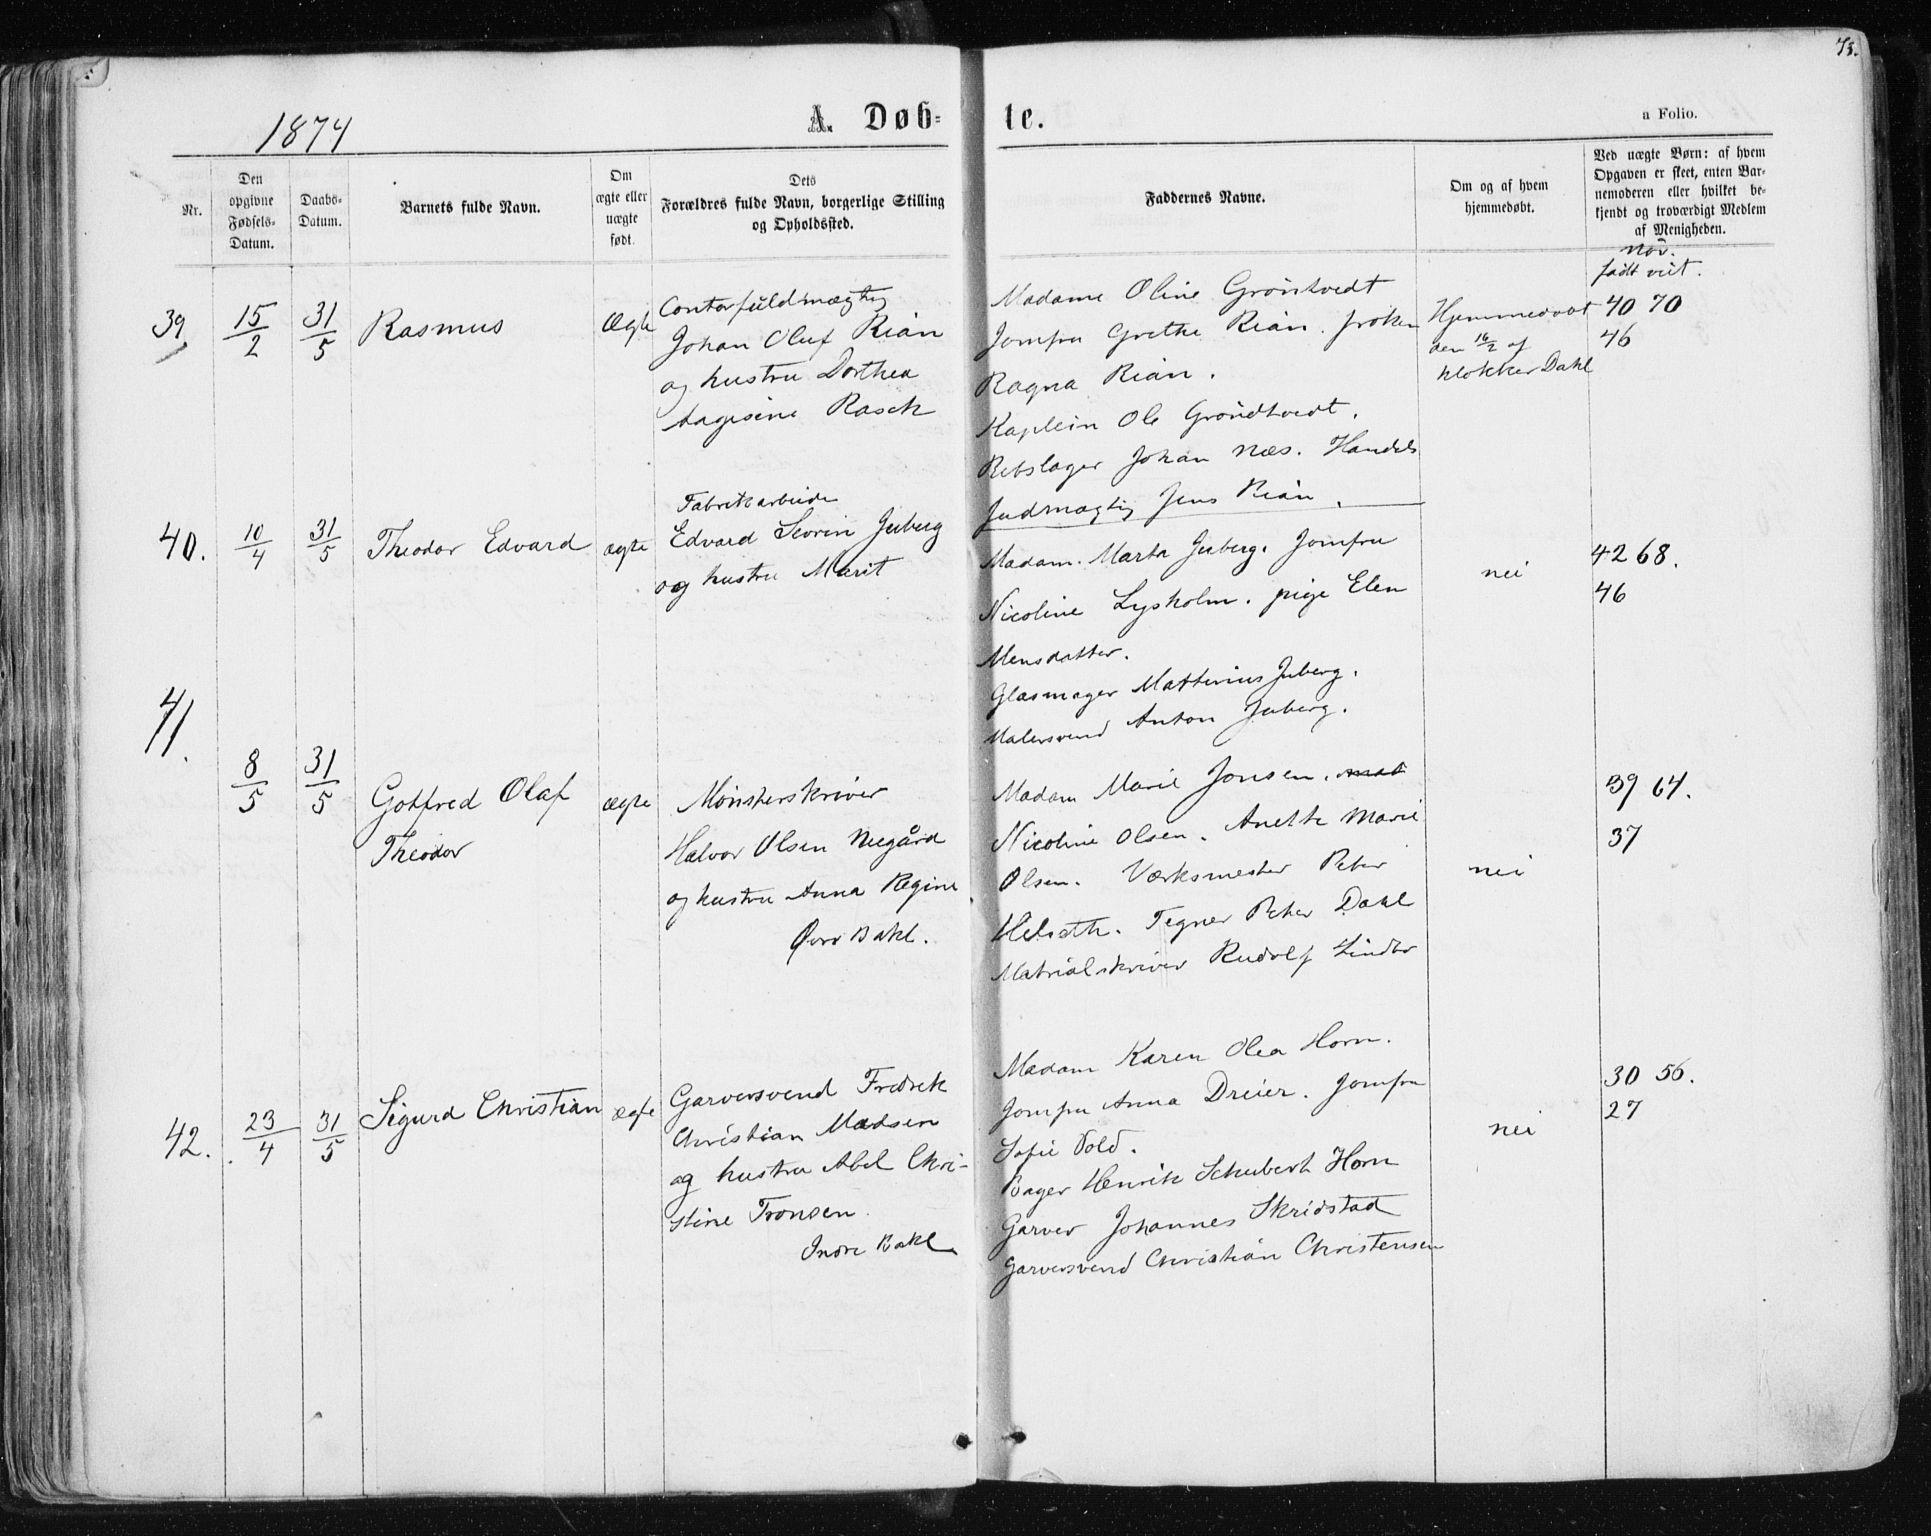 73.
1874
A. Døb-
te.
a Folio.
Nr.
Den
opgivne
Fødsels-
Datum.
Daabs-
Datum.
Barnets fulde Navn.
Om
ægte eller
uægte
født.
Dets
Forældres fulde Navn, borgerlige Stilling
og Opholdssted.
Faddernes Navne.
Om og af hvem
hjemmedøbt.
Ved uægte Børn: af hvem
Opgaven er skeet, enten Bar-
nemoderen eller hvilket be-
kjendt og troværdigt Medlem
af Menigheden.
født viet.
39
15/2
31/5
Rasmus
Ægte
Contorfuldmægtig
Johan Oluf Riån
og hustru Dorthea
Aagesine Rasch
Madame Oline Grønstvedt
Jomfru Grethe Riån. frøken
Ragna Riån.
Kaptein Ole Grøndtvedt.
Rebslager Johan Næs. Handels
fudmægtig Jens Riån.
Hjemmedøbt
den 16/2 af
klokker Dahl
40 70
46
40.
10/4
31/5
Theodor Edvard
ægte
Fabrikarbeide
Edvard Severin Juberg
og hustru Marit
Madam. Marta Juberg. Jomfru
Nicoline Lysholm. pige Elen
Mensdatter.
Glasmager Mattinius Juberg.
Malersvend Anton Juberg.
nei
42 68.
46
41.
8/5
31/5
Gotfred Olaf
Theodor
ægte
Mønsterskriver
Halvor Olsen Neegård
og hustru Anna Regine
Øvre Bakl.
Madam Marie Jonsen.
Nicoline Olsen. Anette Marie
Olsen. Værksmester Peter
Helseth. Tegner Peter Dahl
Matrialskriver Rudolf Linder
nei
39 64.
37
42.
23/4
31/5
Sigurd Christian
ægte
Garversvend Fredrik
Christian Madsen
og hustru Abel Chri-
stine Tronsen.
Indre Bakl.
Madam Karen Olea Horn.
Jomfru Anna Dreier. Jomfru
Sofie Vold.
Bager Henrik Schubert Horn
Garver Johannes Skridstad
Garversvend Christian Christensen
nei
30 56.
27